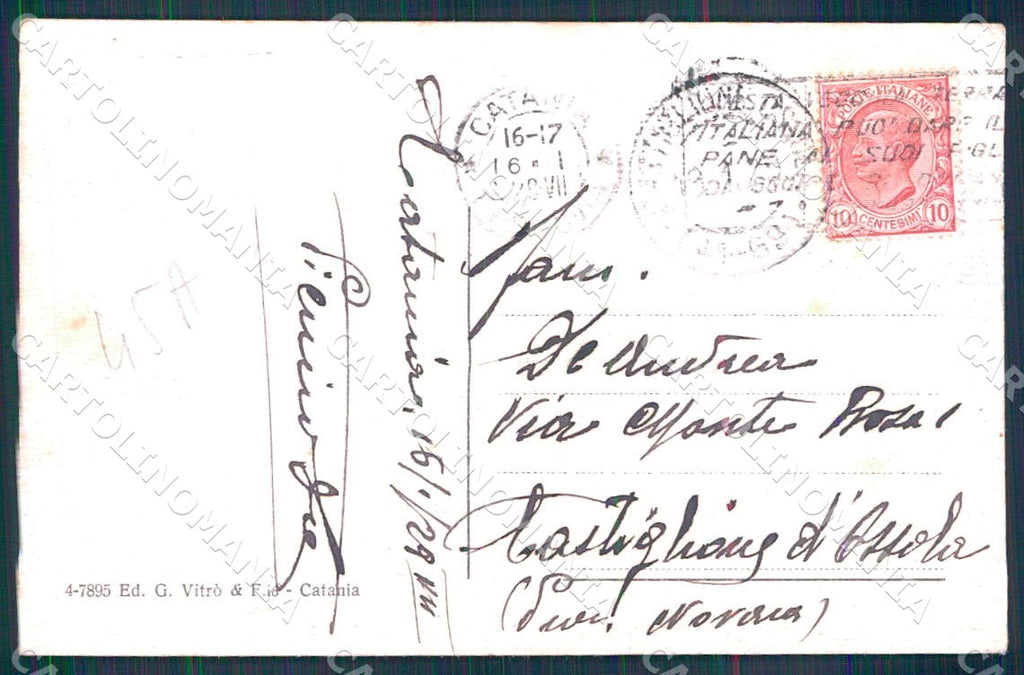 Catania, 16/1/29 VII
CATANIA
16-17
16 · 1
29 VII
ITALIANA PUO' DARE IL
PANE AI SUOI FIGLI
POSTE ITALIANE
10 CENTESIMI 10
Fam.
De Andrea
Via Monte Rosa 1
Castiglione d'Ossola
(Prov. Novara)
4-7895 Ed. G. Vitrò & F.io - Catania
CARTOLINOMANIA